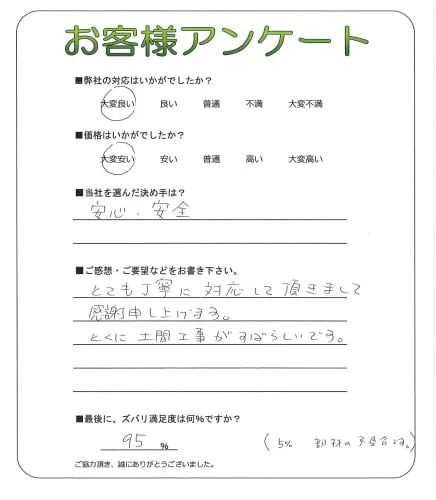 お客様アンケート
■弊社の対応はいかがでしたか？
大変良い 良い 普通 不満 大変不満
■価格はいかがでしたか？
大変安い 安い 普通 高い 大変高い
■当社を選んだ決め手は？
安心、安全
■ご感想・ご要望などをお書き下さい。
とても丁寧に対応して頂きまして
感謝申し上げます。
とくに土間工事がすばらしいです。
■最後に、ズバリ満足度は何％ですか？
95 ％
(5% 部材の不具合です。)
ご協力頂き、誠にありがとうございました。